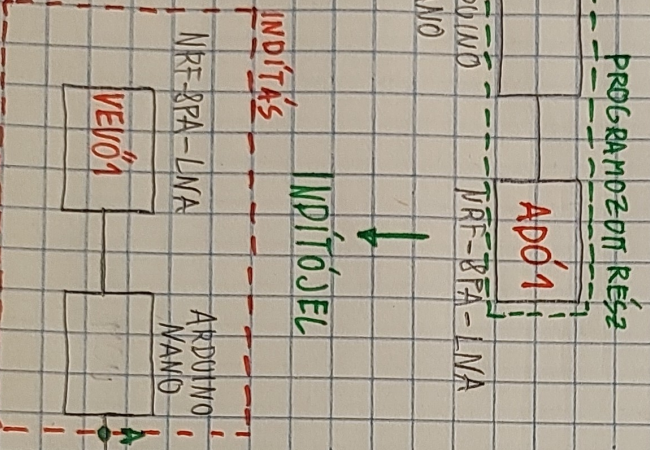 PROGRAMOZOTT RÉSZ
ADÓ1
NRF-8PA-LNA
INDÍTÓJEL
INDÍTÁS
NRF-8PA-LNA
VEVŐ1
ARDUINO
NANO
A